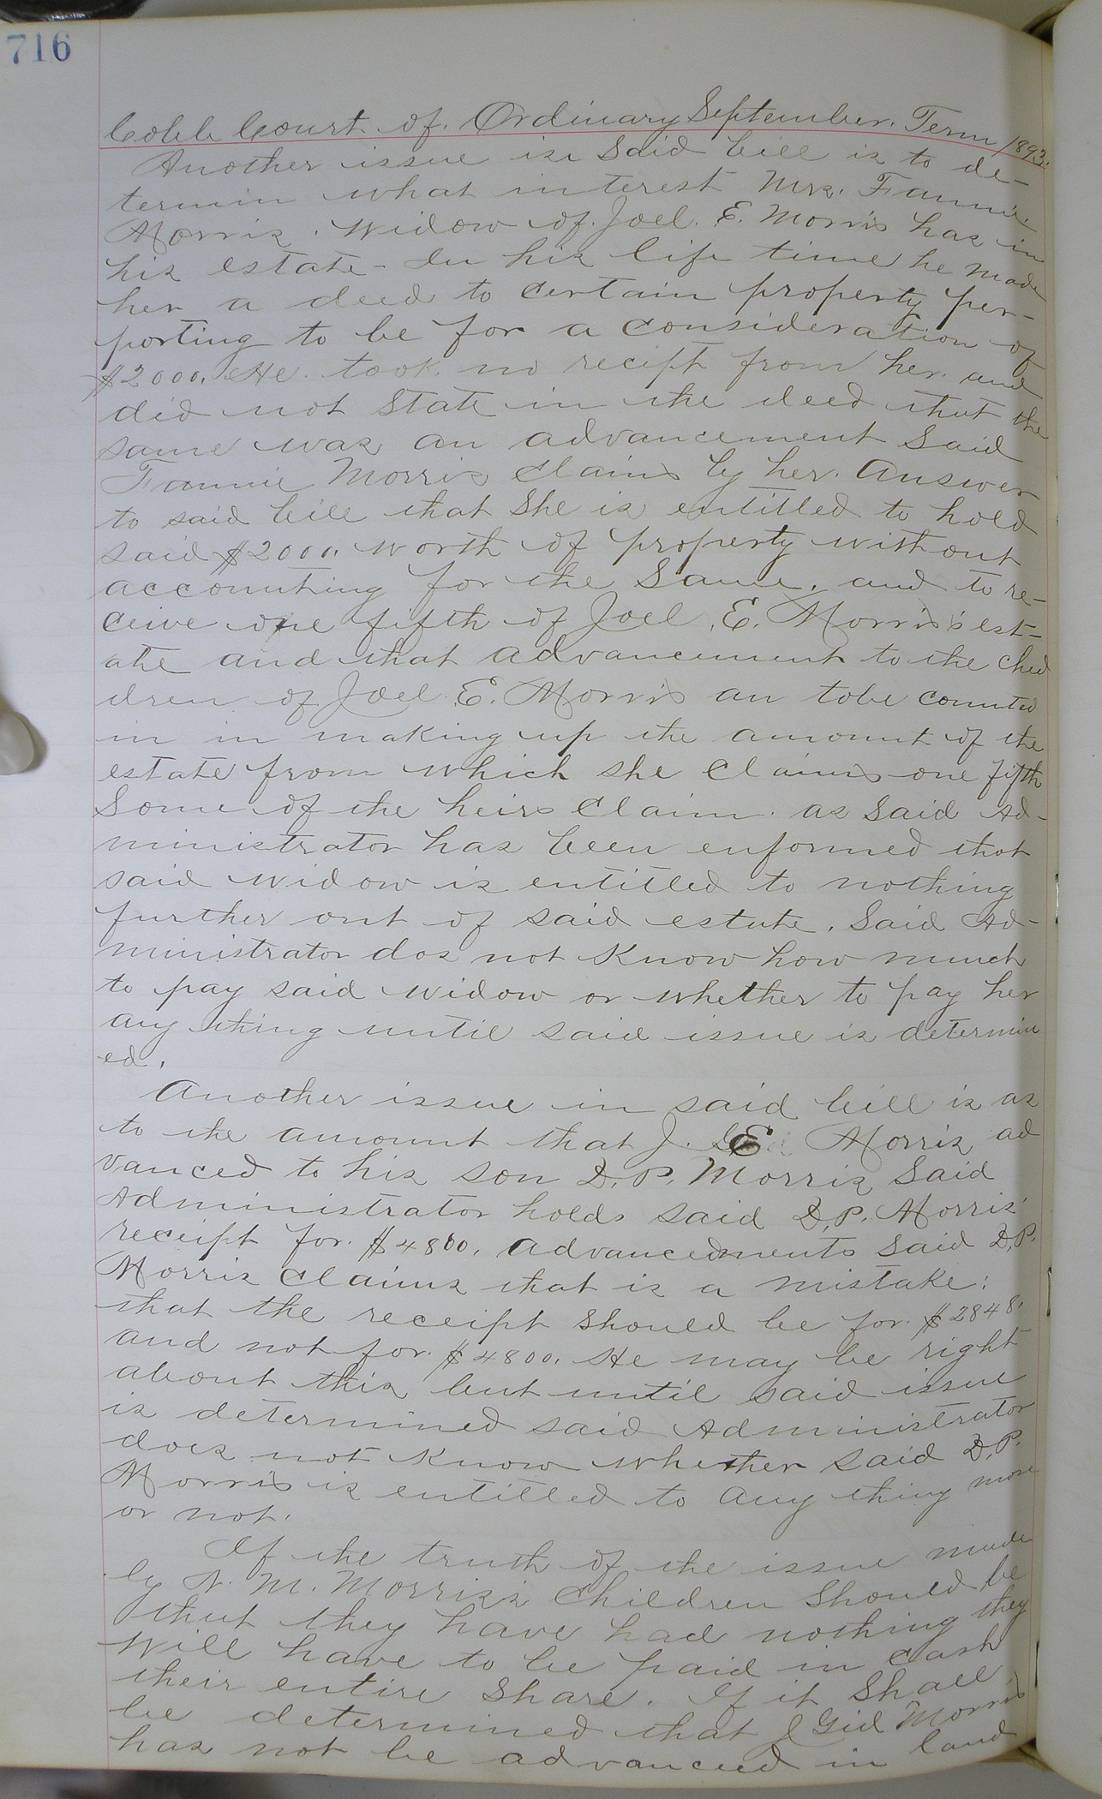 716
Cobb Court of Ordinary September Term 1893.
Another issue in said bill is to de-
termin what interest Mrs. Fannie
Morris. Widow of Joel E. Morris has in
his estate - In his life time he made
her a deed to certain property per-
porting to be for a consideration of
$2000. He took no recipt from her and
did not state in the deed that the
same was an advancement Said
Fannie Morris claims by her Answer
to said bill that she is entitled to hold
said $2000. worth of property without
accounting for the same. and to re-
ceive one fifth of Joel E. Morris's est-
ate and that advancement to the chil
dren of Joel E. Morris an tobe counted
in in making up the amount of the
estate from which she claims one fifth
Some of the heirs claim. as said Ad-
ministrator has been enformed that
said widow is entitled to nothing
further out of said estate. Said Ad-
ministrator dos not Know how much
to pay said widow or whether to pay her
any thing until said issue is determin
ed.
Another issue in said bill is as
to the amount that J. E Morris ad
vanced to his son D.P. Morris Said
Administrator holds said D.P. Morris'
receipt for $4800. advancedments said D.P.
Morris claims that is a mistake;
that the receipt should be for $2848.
and not for $4800. He may be right
about this but until said issue
is determined said Administrator
does not Know whether said D.P.
Morris is entitled to any thing more
or not.
If the truth of the issue made
by N. M. Morris's Children should be
that they have had nothing they
will have to be paid in cash
their entire share. If it shall
be determined that J Gid Morris
has not be advanced in land